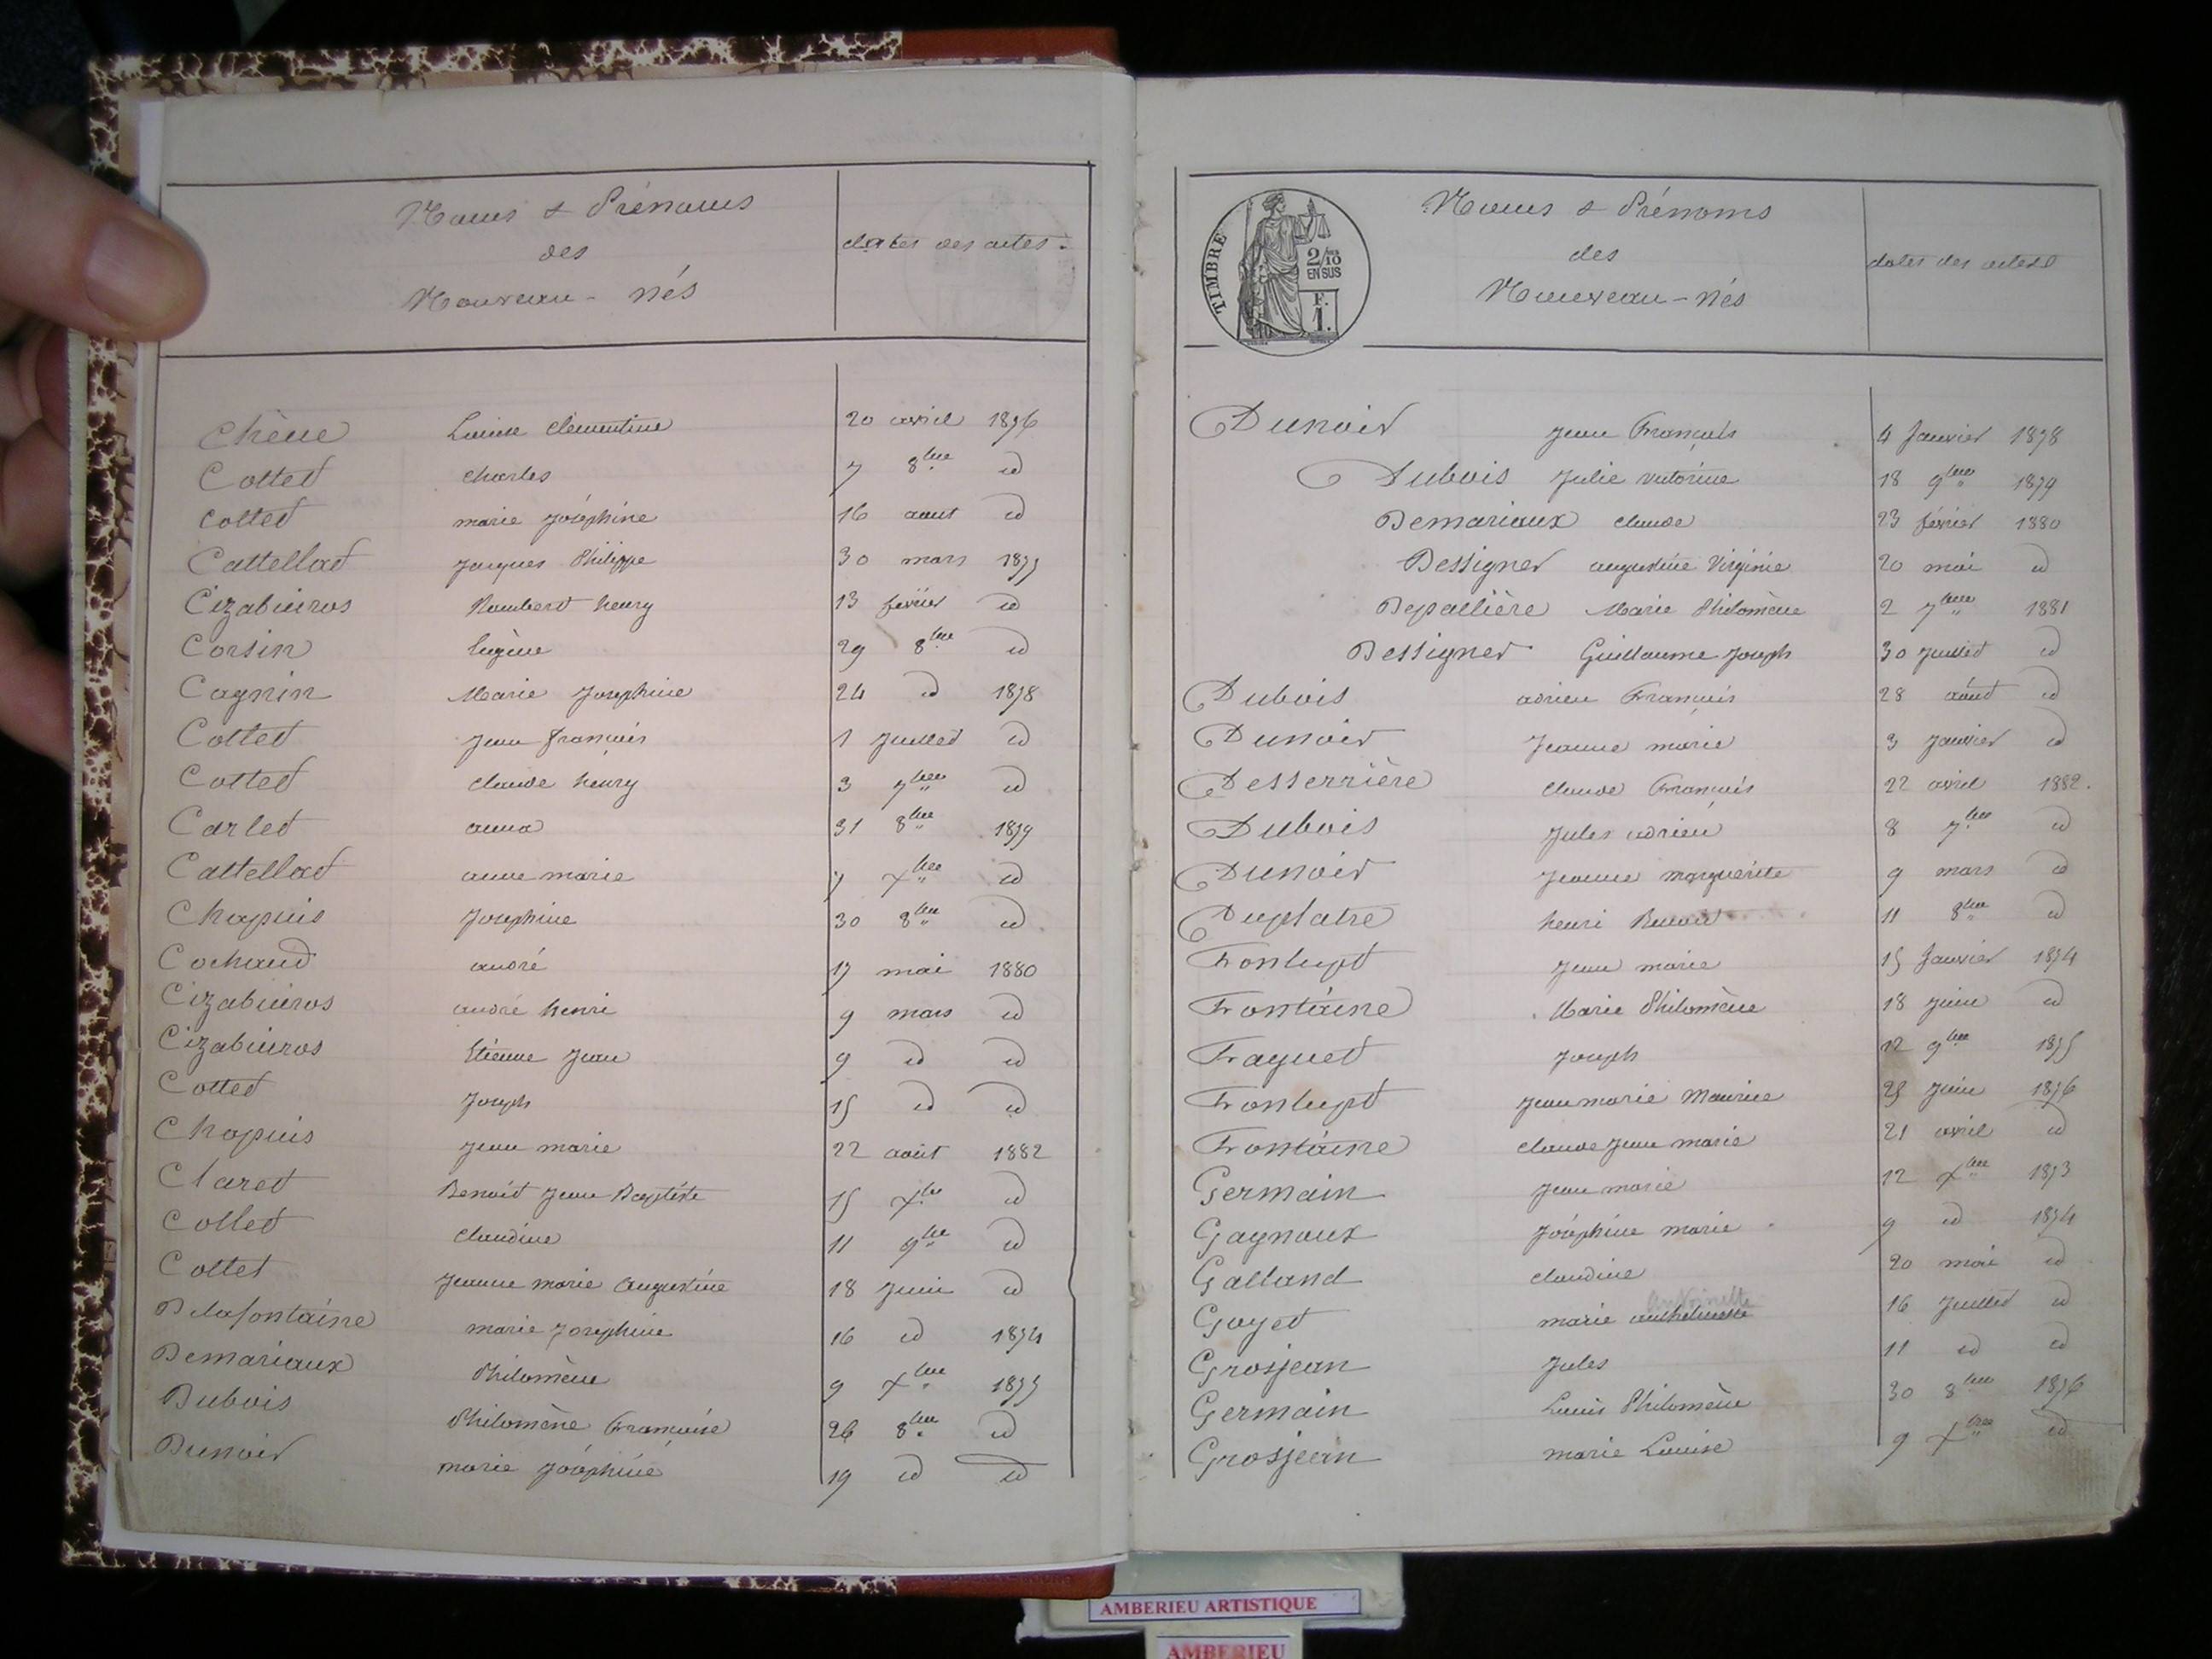 Noms & Prénoms
des
Nouveau-nés
dates des actes.
Chêne Louise clémentine 20 avril 1876
Cottet charles 7 8bre id
Cottet marie joséphine 16 aout id
Cattellat jacques Philippe 30 mars 1877
Cizabuiros Humbert henry 13 février id
Corsin Eugène 29 8bre id
Cagnin Marie Josephine 24 id 1878
Cottet jean françois 1 juillet id
Cottet claude henry 3 7bre id
Carlet anna 31 8bre 1879
Cattellat anne marie 7 Xbre id
Chapuis Josephine 30 8bre id
Cochaud andré 17 mai 1880
Cizabuiros andré henri 9 mars id
Cizabuiros Etienne Jean 9 id id
Cottet Joseph 15 id id
Chapuis jean marie 22 août 1882
Claret Benoit Jean Baptiste 15 Xbre id
Collet claudine 11 9bre id
Cottet jeanne marie augustine 18 juin id
Delafontaine marie josephine 16 id 1874
Demariaux Philomène 9 Xbre 1875
Dubois Philomène Françoise 26 8bre id
Dunoir marie joséphine 19 id id
TIMBRE
2/10
EN SUS
F.
1.
Noms & Prénoms
des
Nouveau-nés
dates des actes
Dunoir jean François 4 Janvier 1878
Dubois Julie victorine 18 9bre 1879
Demariaux claude 23 février 1880
Dessigner augustine Virginie 20 mai id
Depallière Marie Philomène 2 7bre 1881
Dessigner Guillaume Joseph 30 juillet id
Dubois adrien François 28 août id
Dunoir Jeanne marie 3 janvier id
Desserrière claude François 22 avril 1882.
Dubois Jules adrien 8 7bre id
Dunoir jeanne marguerite 9 mars id
Duplatre henri Benoit 11 8bre id
Fontupt jean marie 15 Janvier 1874
Fontaine Marie Philomène 18 juin id
Faguet joseph 12 9bre 1875
Fontupt jean marie Maurice 25 juin 1876
Fontaine claude jean marie 21 avril id
Germain jean marie 12 Xbre 1873
Gagnoux joséphine marie 9 id 1874
Galland claudine 20 mai id
antoinette
Goyet marie anthelmette 16 juillet id
Grosjean Jules 11 id id
Germain Louis Philomène 30 8bre 1876
Grosjean marie Louise 9 Xbre id
AMBERIEU ARTISTIQUE
AMBERIEU